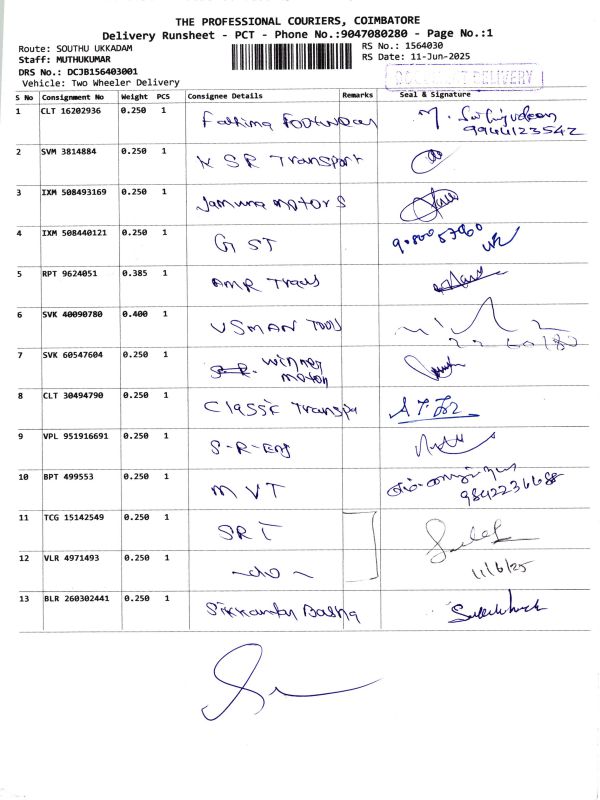 THE PROFESSIONAL COURIERS, COIMBATORE
Delivery Runsheet - PCT - Phone No.:9047080280 - Page No.:1
Route: SOUTHU UKKADAM
RS No.: 1564030
Staff: MUTHUKUMAR
RS Date: 11-Jun-2025
DRS No.: DCJB156403001
Vehicle: Two Wheeler Delivery
DOCUMENT DELIVERY
S No Consignment No Weight PCS Consignee Details Remarks Seal & Signature
1 CLT 16202936 0.250 1 Fathima Footwear
9944123542
2 SVM 3814884 0.250 1 K SR Transport
3 IXM 508493169 0.250 1 Jamuna motors
4 IXM 508440121 0.250 1 G ST
5 RPT 9624051 0.385 1 AMR Trans
6 SVK 40090780 0.400 1 USMAN Tools
7 SVK 60547604 0.250 1 winner
motor
8 CLT 30494790 0.250 1 Classic Transpo
9 VPL 951916691 0.250 1 S-R-Eng
10 BPT 499553 0.250 1 M V T
9842236688
11 TCG 15142549 0.250 1 SRT
12 VLR 4971493 0.250 1 -do-
11/6/25
13 BLR 260302441 0.250 1 Sikkandar Basha